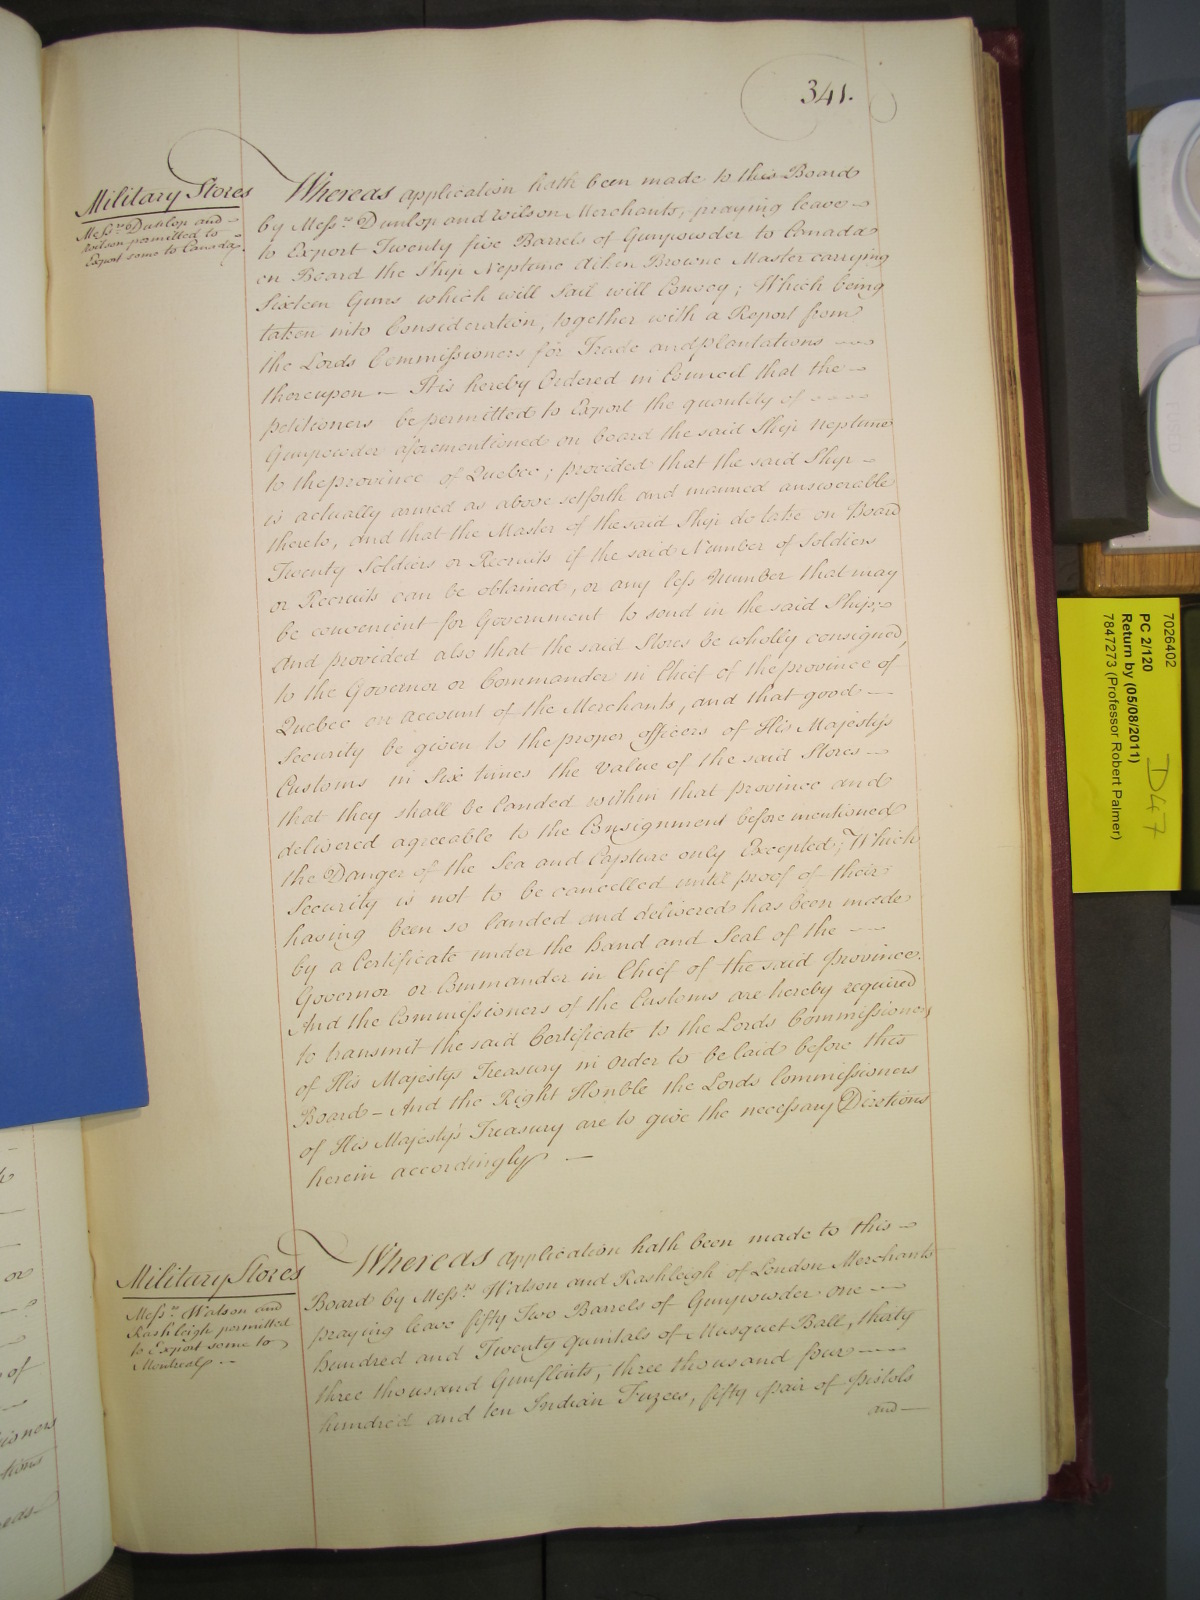 341.
Military Stores
Messrs. Dunlop and
Wilson permitted to
Export some to Canada.
Whereas application hath been made to this Board
by Messrs. Dunlop and Wilson Merchants, praying leave
to Export Twenty five Barrels of Gunpowder to Canada
on Board the Ship Neptune Aitken Browne Master carrying
Sixteen Guns which will sail will Convoy; Which being
taken into Consideration, together with a Report from
the Lords Commissioners for Trade and plantations
thereupon — It is hereby Ordered in Council that the
petitioners be permitted to Export the quantity of
Gunpowder aforementioned on board the said Ship Neptune
to the province of Quebec; provided that the said Ship
is actually armed as above setforth and manned answerable
thereto, and that the Master of the said Ship do take on Board
Twenty Soldiers or Recruits if the said Number of Soldiers
or Recruits can be obtained, or any less Number that may
be convenient for Government to send in the said Ship;
and provided also that the said Stores be wholly consigned,
to the Governor or Commander in Chief of the province of
Quebec on account of the Merchants, and that good
Security be given to the proper officers of His Majestys
Customs in Six times the Value of the said Stores
that they shall be landed within that province and
delivered agreeable to the Consignment before mentioned
the Danger of the Sea and Capture only Excepted; Which
Security is not to be cancelled until proof of their
having been so landed and delivered has been made
by a Certificate under the Hand and Seal of the
Governor or Commander in Chief of the said province.
And the Commissioners of the Customs are hereby required
to transmit the said Certificate to the Lords Commissioners
of His Majestys Treasury in order to be laid before this
Board — And the Right Honble the Lords Commissioners
of His Majesty's Treasury are to give the necessary Directions
herein accordingly —
Military Stores
Messrs. Watson and
Rashleigh permitted
to Export some to
Montreal
Whereas application hath been made to this
Board by Messrs. Watson and Rashleigh of London Merchants
praying leave fifty Two Barrels of Gunpowder one
hundred and Twenty quintals of Musquet Ball, thirty
three thousand Gunflints, three thousand four
hundred and ten Indian Fuzees, fifty pair of pistols
and
7026402
PC 2/120
Return by (05/08/2011)
7847273 (Professor Robert Palmer)
D47
or
of